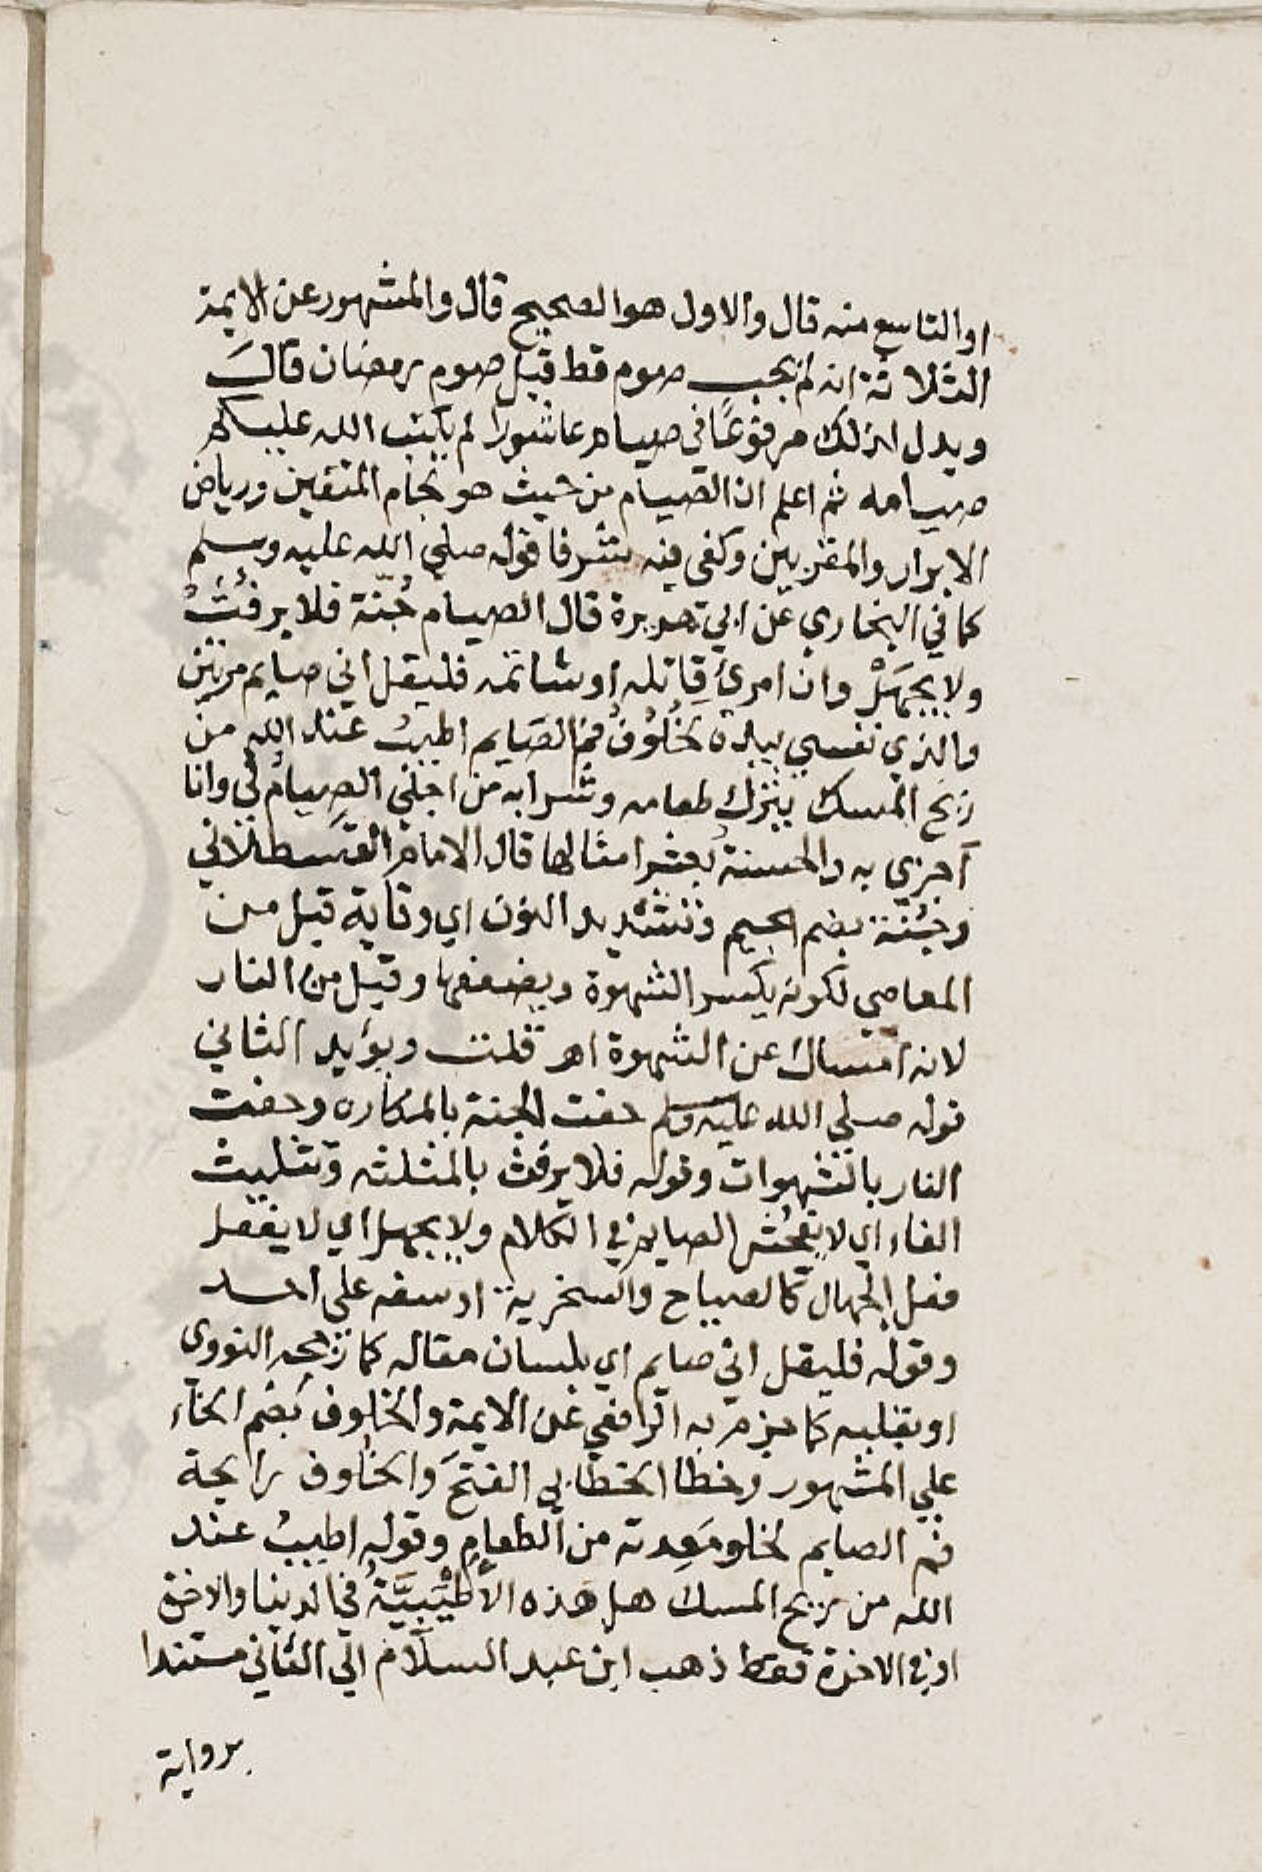 او التاسع منه قال والاول هو الصحيح قال والمشهور عن الايمة
الثلاثة انه لم يجب صوم قط قبل صوم رمضان قال
ويدل لذلك مرفوعًا في صيام عاشورا لم يكتب الله عليكم
صيامه ثم اعلم ان الصيام من حيث هو لجام المتقين ورياض
الابرار والمقربين وكفى فيه شرفا قوله صلي الله عليه وسلم
كما في البخاري عن ابي هريرة قال الصيام جُنّة فلا يرفُثْ
ولا يجهَلْ وان امرئ قاتله او شاتمه فليقل اني صايم مرتين
والذي نفسي بيده لخُلُوْفُ فم الصَايم اطيبُ عند الله من
ريح المسك يترك طعامه وشرابه من اجلي الصِيامُ لي وانا
آجزي به والحسنةُ بعشر امثالها قال الامام القسَطلاني
وجُنّة بضم الجيم وتشديد النون اي وقاية قيل من
المعاصي لكونه يكسر الشهوة ويضعفها وقيل من النار
لانه امساك عن الشهوة اهر قلت ويؤيد الثاني
قوله صلي الله عليه وسلم حفت الجنة بالمكاره وحفت
النار بالشهوات وقوله فلا يرفث بالمثلثه وتثليث
الفاء اي لا يفحُش الصايم في الكلام ولا يجهل اي لا يفعل
فعل الجهال كالصياح والسخرية او سفه على احد
وقوله فليقل اني صايم اي بلسان مقاله كما رجحه النووي
او بقلبه كما جزم به الرافعي عن الايمة والخلوف بضم الخاء
علي المشهور وخطا الخطابي الفتحَ والخلوف رايحة
فم الصايم لخلو مَعِدته من الطعام وقوله اطيبُ عند
الله من ريح المسك هل هَذه الأطْيَبِيَّةُ في الدينا والاخرة
او في الاخرة فقط ذهب ابن عبد السلام الي الثاني مستندا
برواية